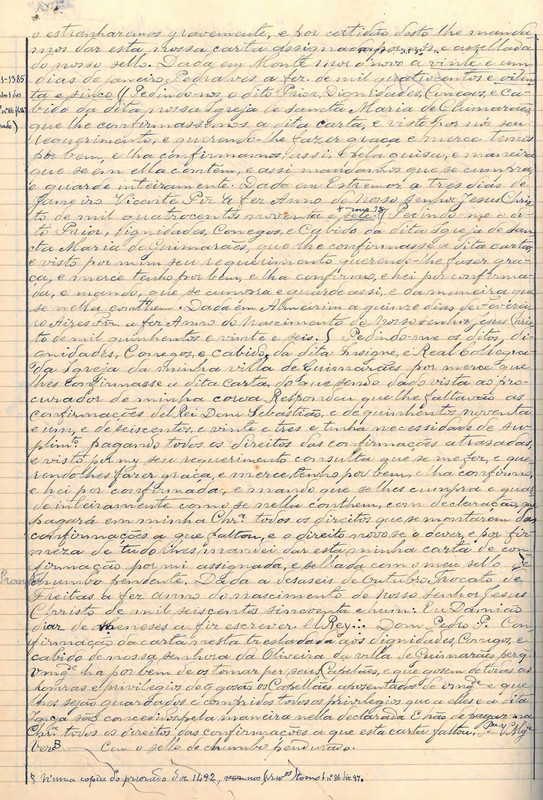 o estranharanos gravemente, e por certidão disto lhe manda
mos dar esta nossa carta assignada por nós, e assellada
do nosso sello. Dada em Monte mor o novo a vinte e um
dias de Janeiro, Pedralves a fez de mil quatrocentos e oiten
ta e sinco. ( Pedindo-nos o dito Prior, Dignidades, Conegos, e Ca-
bido da dita, nossa Igreja de Sancta Maria de Guimarães,
que lhe confirmassemos a dita carta, e visto por nós seu
requerimento, e querendo-lhe fazer graça e merce temos
por bem, e lha confirmamos, assi, e pela guisa, e maneira
que se em ella contem, e assi mandamos que se cumpra,
e guarde inteiramente. Dado em Estremoz a tres dias de
Janeiro Vicente Pir'z a fez Anno de nosso senhor Jesus Chris
to de mil quatrocentos noventa e sete. ( Pedindo-me o di-
to Prior, Dignidades, Conegos, e Cabido da dita Igreja de San-
cta Maria de Guimarães, que lhe confirmasse a dita carta,
e visto por mim seu requerimento querendo-lhe faser gra-
ça, e merce tenho por bem, e lha confirmo, e hei por confirma-
da, e mando, que se cumpra e guarde assi, e da maneira que
se nella conthem. Dada em Almeirim a quinze dias de Fevereiro
Aires a fez Anno do Nascimento de Nosso Senhor Jesus Chris
to de mil quinhentos e vinte e seis. ( Pedindo-me os ditos, Di-
gnidades, Conegos, e cabido, da dita Insigne, e Real Collegia-
da Igreja da minha villa de Guimarães por merce que
lhes confirmasse a dita carta, do que sendo dado vista ao pro-
curador de minha coroa, Respondeu que lhe faltavão as
confirmações del Rei Dom Sebastião, e de quinhentos noventa
e um, e de seiscentos, e vinte e tres e tinha necessidade de su-
plim.to pagando todos os direitos das confirmações atrasadas,
e visto por my seu requerimento consulta que se me fez, e que-
rendo lhes faser graça, e merce, tenho por bem, e lha confirmo,
e hei por confirmada, e mando que se lhes cumpra e guar
de inteiramente como se nella conthem, com declaração, que
pagará em minha Chr.ia todos os direitos que se montarem das
confirmações a que faltou, e o direito novo se o dever, e por fir-
meza de tudo lhes mandei dar esta minha carta de con-
firmação por mi assignada, e sellada com o meu sello de
chumbo pendente. Dada a desaseis de Outubro. Trocato de
Freitas a fez anno do nascimento de Nosso Senhor Jesus
Christo de mil seiscentos sincoenta e hum. Eu Damião
Diaz de Meneses a fiz escrever. El Rey.: Dom Pedro P. Con-
firmação da carta nesta tresladada aos dignidades, Conegos, e
cabido de nossa senhora da Oliveira da villa de Guimarães per q
vmg.de ha por bem de os tomar por seus Capelães, e que gosem de todas as
honras e privilegios de q gosão os Capellães aposentados de vmg.de e que
lhes sejão guardados e compridos todos os privilegios que a elles e a dita
Igreja são concedidos pela maneira nella declarada E hão de pagar na
Chr.ia todos os direitos das confirmações a que esta carta faltou. P.a V. Mg.de
Ver §. Com o sello de chumbo pendurado.
§ N'uma copia do priorado D.or 1492,